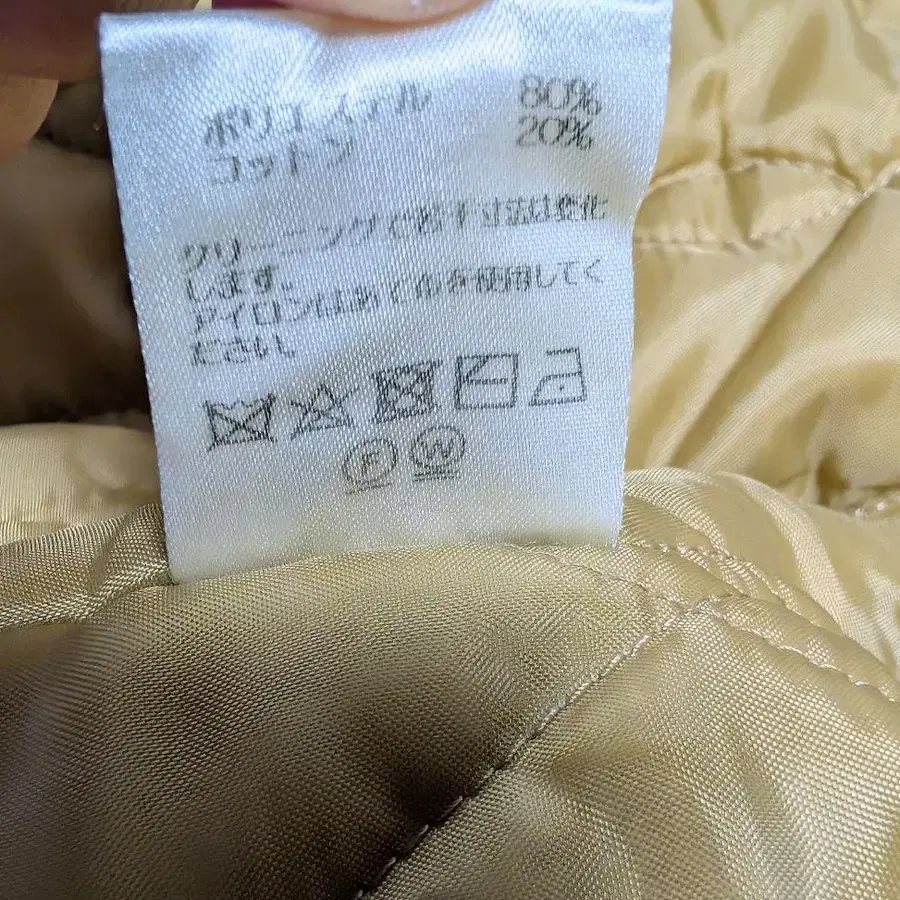 ポリエステル 80%
コットン 20%
クリーニングで若干寸法は変化
します。
アイロンはあて布を使用してく
ださい。
F W